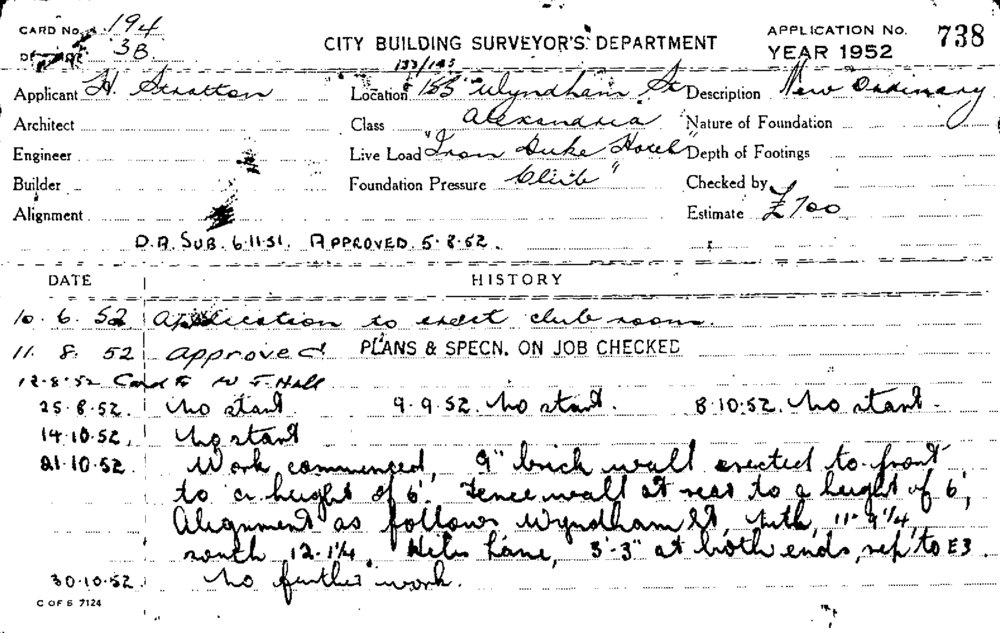 CARD No. 194
3B
CITY BUILDING SURVEYOR'S DEPARTMENT
APPLICATION No. 738
YEAR 1952
133/145
Applicant H. Stratton Location 155 Wyndham St Description New Ordinary
Architect Class Alexandria Nature of Foundation
Engineer Live Load "Iron Duke Hotel Depth of Footings
Builder Foundation Pressure Club" Checked by
Alignment Estimate £700
D.A. SUB. 6.11.51. APPROVED 5.8.52.
DATE HISTORY
10.6.52 Application to erect club room.
11.8.52 Approved PLANS & SPECN. ON JOB CHECKED
12-8-52 Card to W F. Hall
25.8.52. No start. 9.9.52. No start. 8.10.52. No start.
14.10.52. No start
21.10.52. Work commenced, 9" brick wall erected to front
to a height of 6'. Fence wall at rear to a height of 6',
Alignment as follows Wyndham St, nth, 11-9¼,
south 12-1¼, Lane, 3'-3" at both ends, ref to E3.
30.10.52. No further work.
C OF S 7124